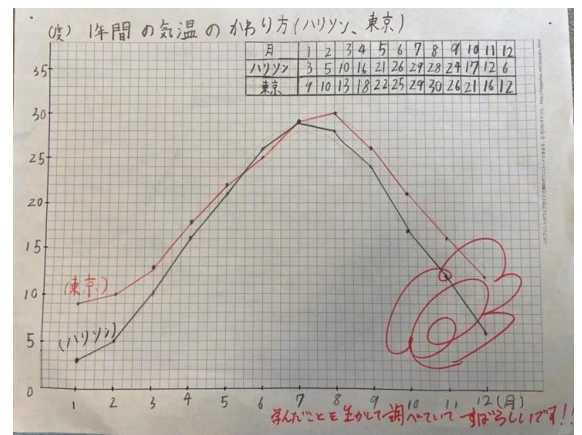 (度) 1年間の気温のかわり方(ハリソン、東京)
月 1 2 3 4 5 6 7 8 9 10 11 12
ハリソン 3 5 10 16 21 26 29 28 24 17 12 6
東京 9 10 13 18 22 25 29 30 26 21 16 12
35
30
25
20
15
10
5
0
(東京)
(ハリソン)
1 2 3 4 5 6 7 8 9 10 11 12(月)
学んだことを生かして調べていてすばらしいです!!